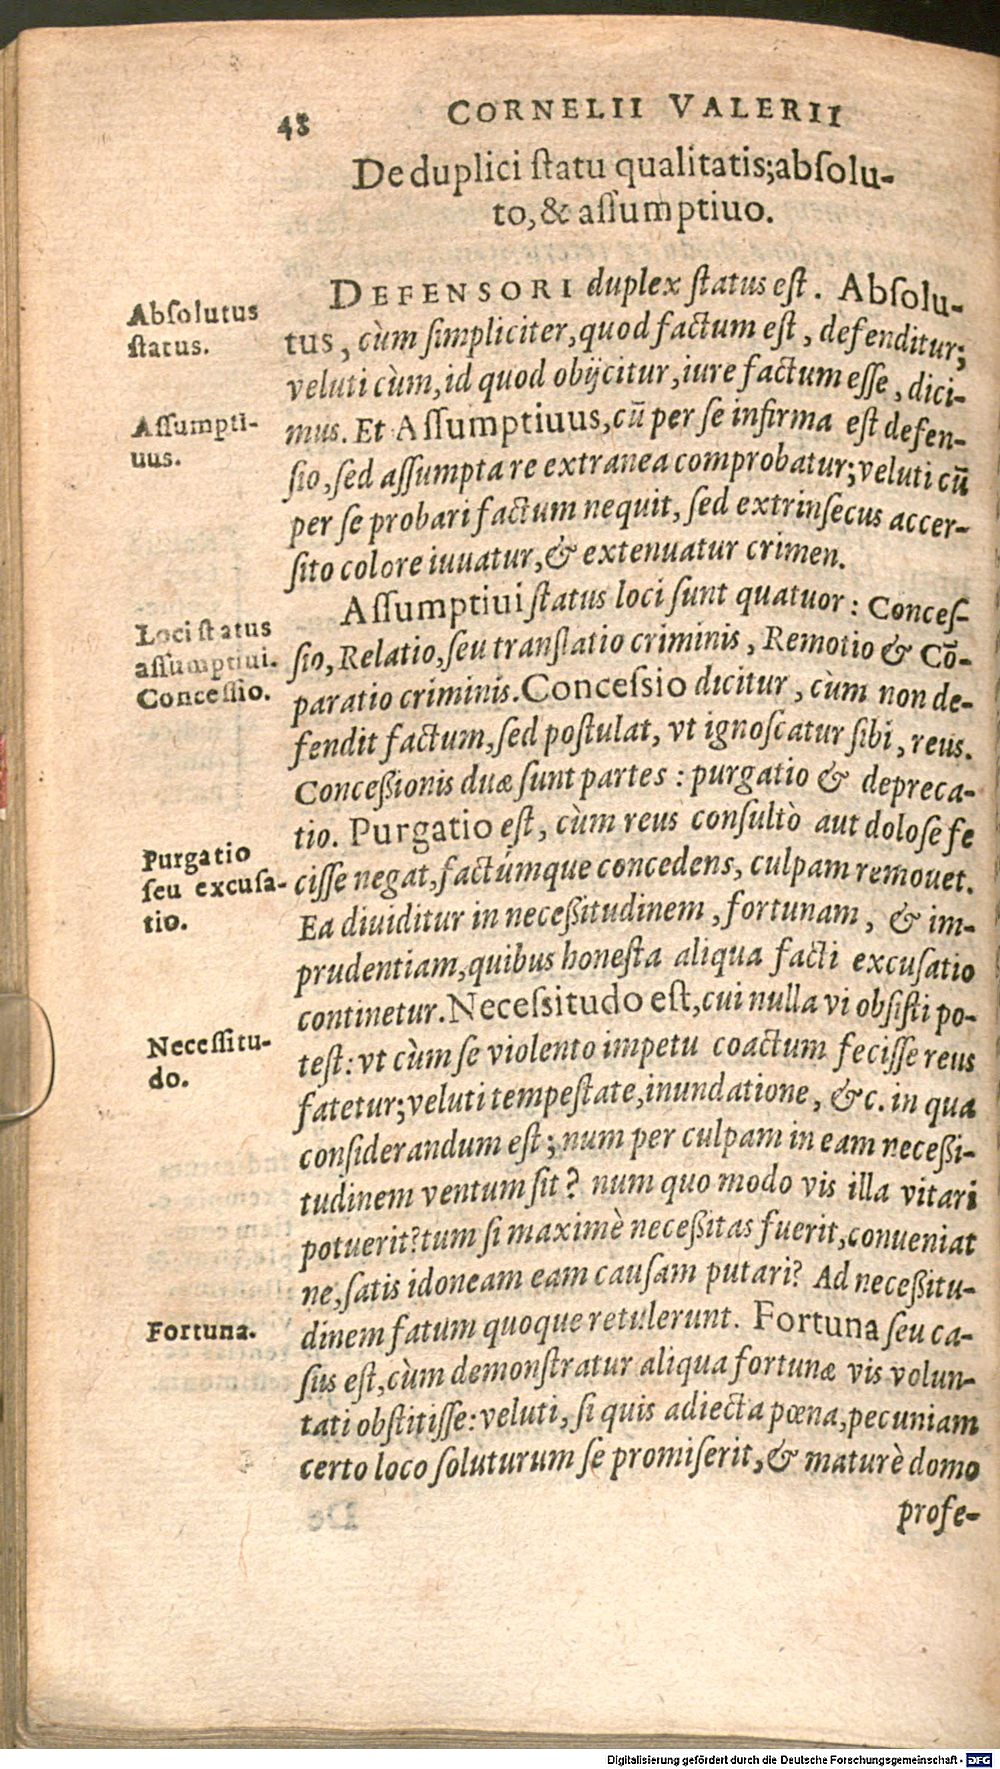 48 CORNELII VALERII
De duplici ſtatu qualitatis; abſolu-
to, & aſſumptiuo.
Abſolutus
ſtatus.
DEFENSORI duplex ſtatus eſt. Abſolu-
tus, cùm ſimpliciter, quod factum eſt, defenditur;
veluti cùm, id quod obijcitur, iure factum eſſe, dici-
Aſſumpti-
uus.
mus. Et Aſſumptiuus, cū per ſe infirma eſt defen-
ſio, ſed aſſumpta re extranea comprobatur; veluti cū
per ſe probari factum nequit, ſed extrinſecus accer-
ſito colore iuuatur, & extenuatur crimen.
Loci ſtatus
aſſumptiui.
Conceſſio.
Aſſumptiui ſtatus loci ſunt quatuor: Conceſ-
ſio, Relatio, ſeu translatio criminis, Remotio & Cō-
paratio criminis. Conceſsio dicitur, cùm non de-
fendit factum, ſed poſtulat, vt ignoſcatur ſibi, reus.
Conceßionis duæ ſunt partes: purgatio & depreca-
tio. Purgatio eſt, cùm reus conſultò aut doloſe fe
Purgatio
ſeu excuſa-
tio.
ciſſe negat, factúmque concedens, culpam remouet.
Ea diuiditur in neceßitudinem, fortunam, & im-
prudentiam, quibus honeſta aliqua facti excuſatio
continetur. Neceſsitudo eſt, cui nulla vi obſiſti po-
Neceſſitu-
do.
teſt: vt cùm ſe violento impetu coactum feciſſe reus
fatetur; veluti tempeſtate, inundatione, &c. in qua
conſiderandum eſt; num per culpam in eam neceßi-
tudinem ventum ſit? num quo modo vis illa vitari
potuerit? tum ſi maximè neceßitas fuerit, conueniat
ne, ſatis idoneam eam cauſam putari? Ad neceßitu-
Fortuna.
dinem fatum quoque retulerunt. Fortuna ſeu ca-
ſus eſt, cùm demonſtratur aliqua fortunæ vis volun-
tati obſtitiſſe: veluti, ſi quis adiecta pœna, pecuniam
certo loco ſoluturum ſe promiſerit, & maturè domo
profe-
Digitalisierung gefördert durch die Deutsche Forschungsgemeinschaft - DFG